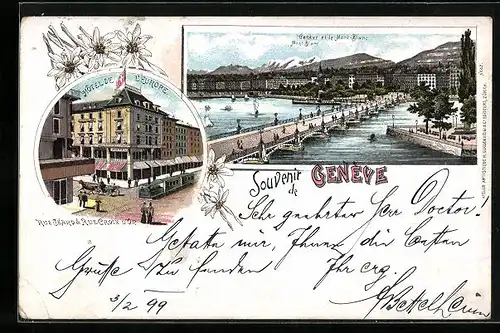 Genève et le Mont-Blanc
Mont Blanc
HÔTEL DE L'EUROPE
RUE CÉARD & RUE CROIX D'OR
Souvenir
de GENÈVE
Sehr geehrter Herr Doctor!
Gestatten mir, Ihnen die besten
Grüsse zu senden Ihr erg.
3/2 99